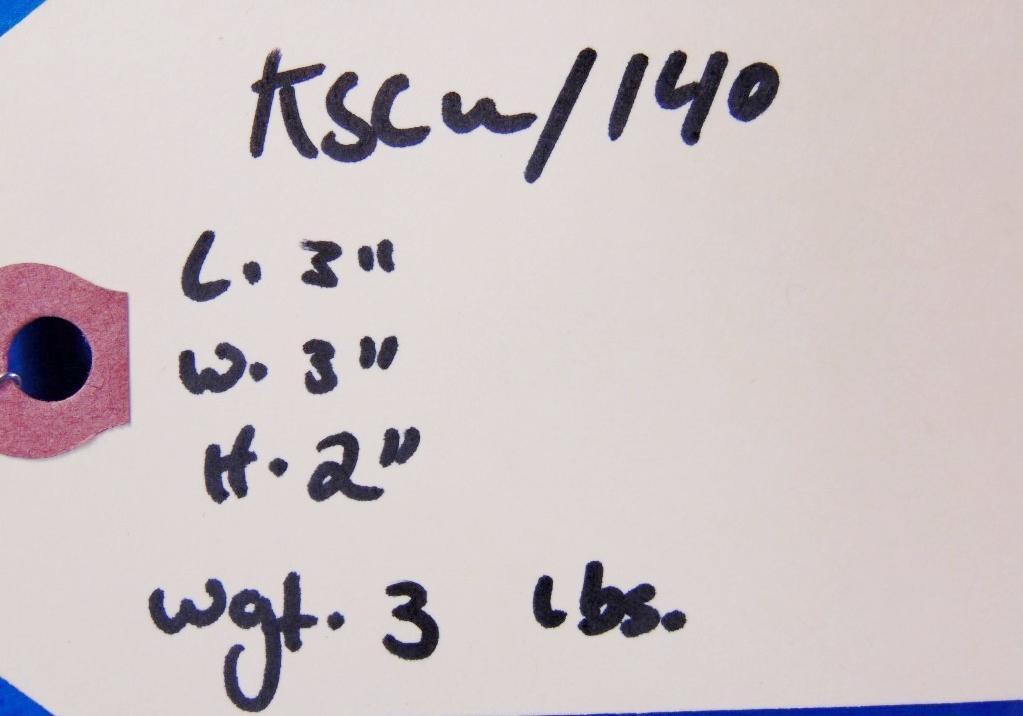 KSCU/140
L. 3"
W. 3"
H. 2"
Wgt. 3 Lbs.